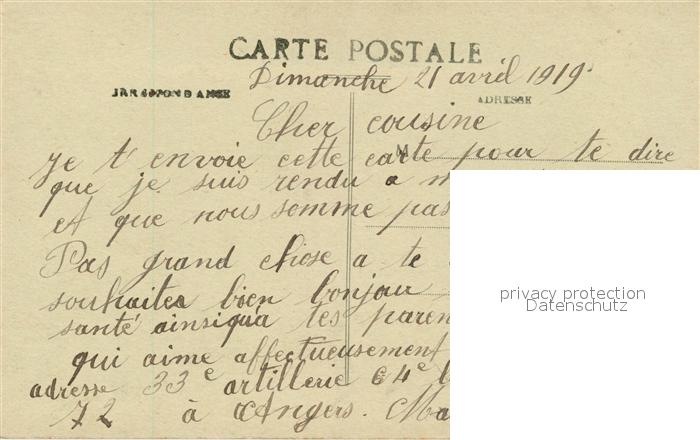 CARTE POSTALE
Dimanche 21 avril 1919
ADRESSE
Cher cousine
Je t'envoie cette carte pour te dire
que je suis rendu a
et que nous somme pas
Pas grand chose a te
souhaites bien bonjour
santé ainsiqua tes
qui aime affectueusement
adresse 33e artillerie 64e
72 à Angers.
privacy protection
Datenschutz